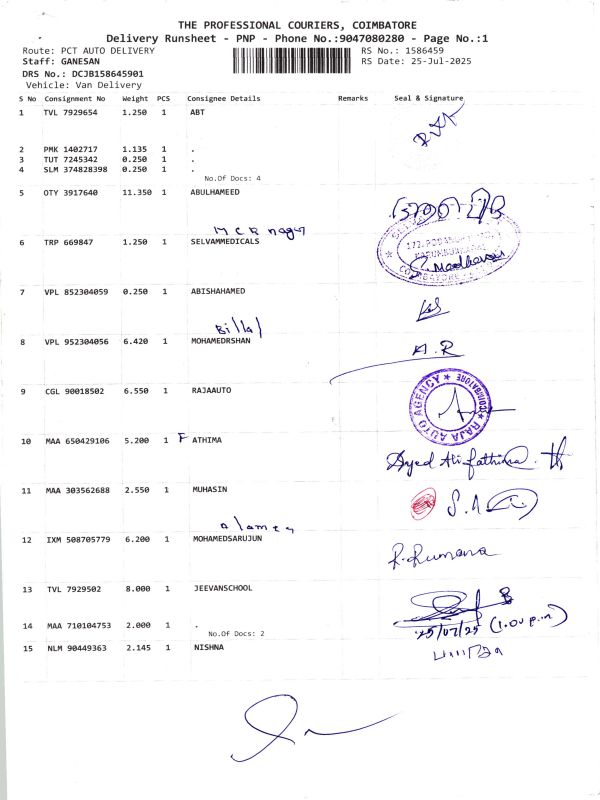 THE PROFESSIONAL COURIERS, COIMBATORE
Delivery Runsheet - PNP - Phone No.:9047080280 - Page No.:1
Route: PCT AUTO DELIVERY RS No.: 1586459
Staff: GANESAN RS Date: 25-Jul-2025
DRS No.: DCJB158645901
Vehicle: Van Delivery
S No Consignment No Weight PCS Consignee Details Remarks Seal & Signature
1 TVL 7929654 1.250 1 ABT
2 PMK 1402717 1.135 1 .
3 TUT 7245342 0.250 1 .
4 SLM 374828398 0.250 1 .
No.Of Docs: 4
5 OTY 3917640 11.350 1 ABULHAMEED
M C R nagar
6 TRP 669847 1.250 1 SELVAMMEDICALS
Madhavan
7 VPL 852304059 0.250 1 ABISHAHAMED
Billal
8 VPL 952304056 6.420 1 MOHAMEDRSHAN A.R
9 CGL 90018502 6.550 1 RAJAAUTO
RAJA AUTO AGENCY ★ COIMBATORE ★
10 MAA 650429106 5.200 1 F ATHIMA
Syed Ali fathima
11 MAA 303562688 2.550 1 MUHASIN S.A
12 IXM 508705779 6.200 1 MOHAMEDSARUJUN
R. Rumana
13 TVL 7929502 8.000 1 JEEVANSCHOOL
14 MAA 710104753 2.000 1 .
25/07/25 (1.00 p.m)
No.Of Docs: 2
15 NLM 90449363 2.145 1 NISHNA